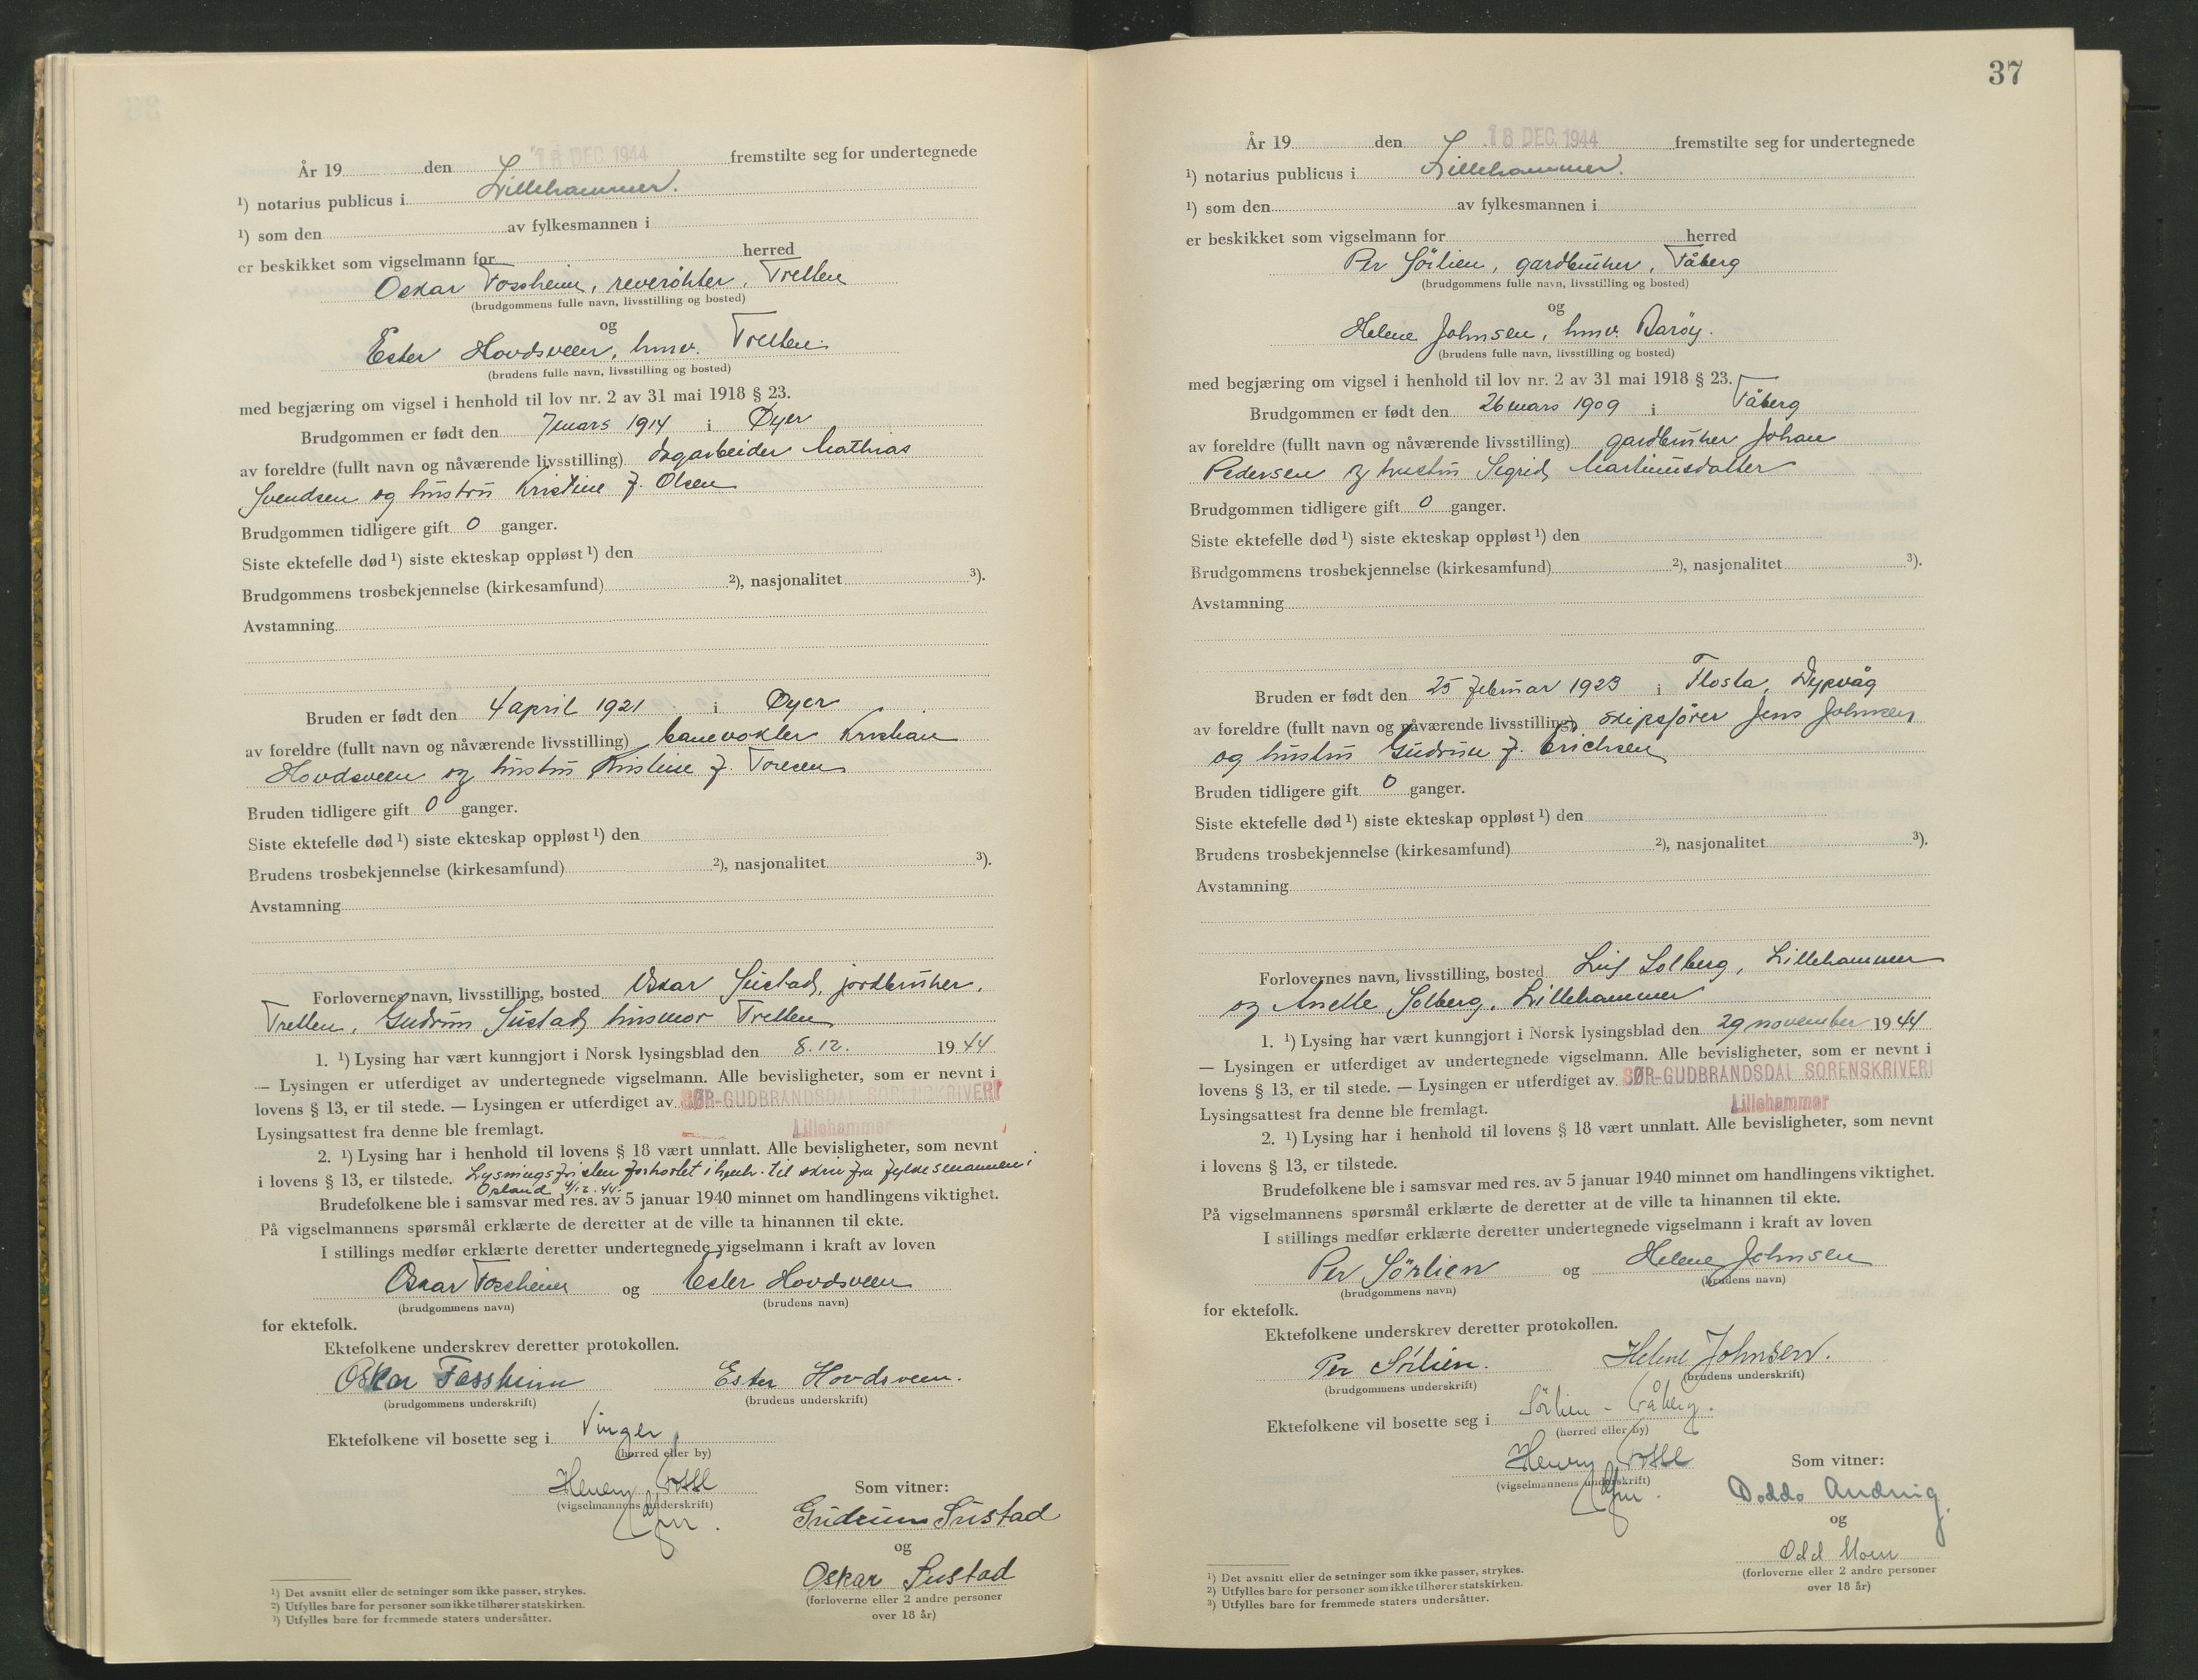 År 19 den 18 DEC. 1944 fremstilte seg for undertegnede
¹) notarius publicus i Lillehammer.
¹) som den av fylkesmannen i
er beskikket som vigselmann for herred
Oskar Fossheim, reverøkter, Tretten
(brudgommens fulle navn, livsstilling og bosted)
og
Ester Hovdsveen, hmv. Tretten.
(brudens fulle navn, livsstilling og bosted)
med begjæring om vigsel i henhold til lov nr. 2 av 31 mai 1918 § 23.
Brudgommen er født den 7 mars 1914 i Øyer
av foreldre (fullt navn og nåværende livsstilling) dagarbeider Mathias
Svendsen og hustru Kristine f. Olsen
Brudgommen tidligere gift 0 ganger.
Siste ektefelle død ¹) siste ekteskap oppløst ¹) den
Brudgommens trosbekjennelse (kirkesamfund) ²), nasjonalitet ³).
Avstamning
Bruden er født den 4 april 1921 i Øyer
av foreldre (fullt navn og nåværende livsstilling) banevokter Kristian
Hovdsveen og hustru Kristine f. Toresen
Bruden tidligere gift 0 ganger.
Siste ektefelle død ¹) siste ekteskap oppløst ¹) den
Brudens trosbekjennelse (kirkesamfund) ²), nasjonalitet ³).
Avstamning
Forlovernes navn, livsstilling, bosted Oskar Sustad, jordbruker,
Tretten, Gudrun Sustad husmor Tretten
1. ¹) Lysing har vært kunngjort i Norsk lysingsblad den 8.12. 19 44
— Lysingen er utferdiget av undertegnede vigselmann. Alle bevisligheter, som er nevnt i
lovens § 13, er til stede. — Lysingen er utferdiget av SØR-GUDBRANDSDAL SORENSKRIVERI
Lillehammer
Lysingsattest fra denne ble fremlagt.
2. ¹) Lysing har i henhold til lovens § 18 vært unnlatt. Alle bevisligheter, som nevnt
i lovens § 13, er tilstede. Lysningsfristen forkortet i henh. til skriv fra fylkesmannen i
Opland 4/12.44.
Brudefolkene ble i samsvar med res. av 5 januar 1940 minnet om handlingens viktighet.
På vigselmannens spørsmål erklærte de deretter at de ville ta hinannen til ekte.
I stillings medfør erklærte deretter undertegnede vigselmann i kraft av loven
Oskar Fossheim og Ester Hovdsveen
(brudgommens navn) (brudens navn)
for ektefolk.
Ektefolkene underskrev deretter protokollen.
Oskar Fossheim Ester Hovdsveen.
(brudgommens underskrift) (brudens underskrift)
Ektefolkene vil bosette seg i Vinger
(herred eller by)
Henry
(vigselmannens underskrift)
Som vitner:
Gudrun Sustad
og
Oskar Sustad
(forloverne eller 2 andre personer
over 18 år)
¹) Det avsnitt eller de setninger som ikke passer, strykes.
²) Utfylles bare for personer som ikke tilhører statskirken.
³) Utfylles bare for fremmede staters undersåtter.
37
År 19 den 18 DEC. 1944 fremstilte seg for undertegnede
¹) notarius publicus i Lillehammer.
¹) som den av fylkesmannen i
er beskikket som vigselmann for herred
Per Sörlien, gardbruker, Fåberg
(brudgommens fulle navn, livsstilling og bosted)
og
Helene Johnsen, hmv. Barøy.
(brudens fulle navn, livsstilling og bosted)
med begjæring om vigsel i henhold til lov nr. 2 av 31 mai 1918 § 23.
Brudgommen er født den 26 mars 1909 i Fåberg
av foreldre (fullt navn og nåværende livsstilling) gardbruker Johan
Pedersen og hustru Sigrid Martinusdatter
Brudgommen tidligere gift 0 ganger.
Siste ektefelle død ¹) siste ekteskap oppløst ¹) den
Brudgommens trosbekjennelse (kirkesamfund) ²), nasjonalitet ³).
Avstamning
Bruden er født den 25 februar 1923 i Flosta, Dypvåg
av foreldre (fullt navn og nåværende livsstilling) skipsfører Jens Johnsen
og hustru Gudrun f. Erichsen
Bruden tidligere gift 0 ganger.
Siste ektefelle død ¹) siste ekteskap oppløst ¹) den
Brudens trosbekjennelse (kirkesamfund) ²), nasjonalitet ³).
Avstamning
Forlovernes navn, livsstilling, bosted Leif Solberg, Lillehammer
og Anette Solberg, Lillehammer
1. ¹) Lysing har vært kunngjort i Norsk lysingsblad den 29 november 19 44
— Lysingen er utferdiget av undertegnede vigselmann. Alle bevisligheter, som er nevnt i
lovens § 13, er til stede. — Lysingen er utferdiget av SØR-GUDBRANDSDAL SORENSKRIVERI
Lillehammer
Lysingsattest fra denne ble fremlagt.
2. ¹) Lysing har i henhold til lovens § 18 vært unnlatt. Alle bevisligheter, som nevnt
i lovens § 13, er tilstede.
Brudefolkene ble i samsvar med res. av 5 januar 1940 minnet om handlingens viktighet.
På vigselmannens spørsmål erklærte de deretter at de ville ta hinannen til ekte.
I stillings medfør erklærte deretter undertegnede vigselmann i kraft av loven
Per Sörlien og Helene Johnsen
(brudgommens navn) (brudens navn)
for ektefolk.
Ektefolkene underskrev deretter protokollen.
Per Sörlien. Helene Johnsen.
(brudgommens underskrift) (brudens underskrift)
Ektefolkene vil bosette seg i Sörlien - Fåberg.
(herred eller by)
Henry
(vigselmannens underskrift)
Som vitner:
Doddo
og
Odd Moen
(forloverne eller 2 andre personer
over 18 år)
¹) Det avsnitt eller de setninger som ikke passer, strykes.
²) Utfylles bare for personer som ikke tilhører statskirken.
³) Utfylles bare for fremmede staters undersåtter.